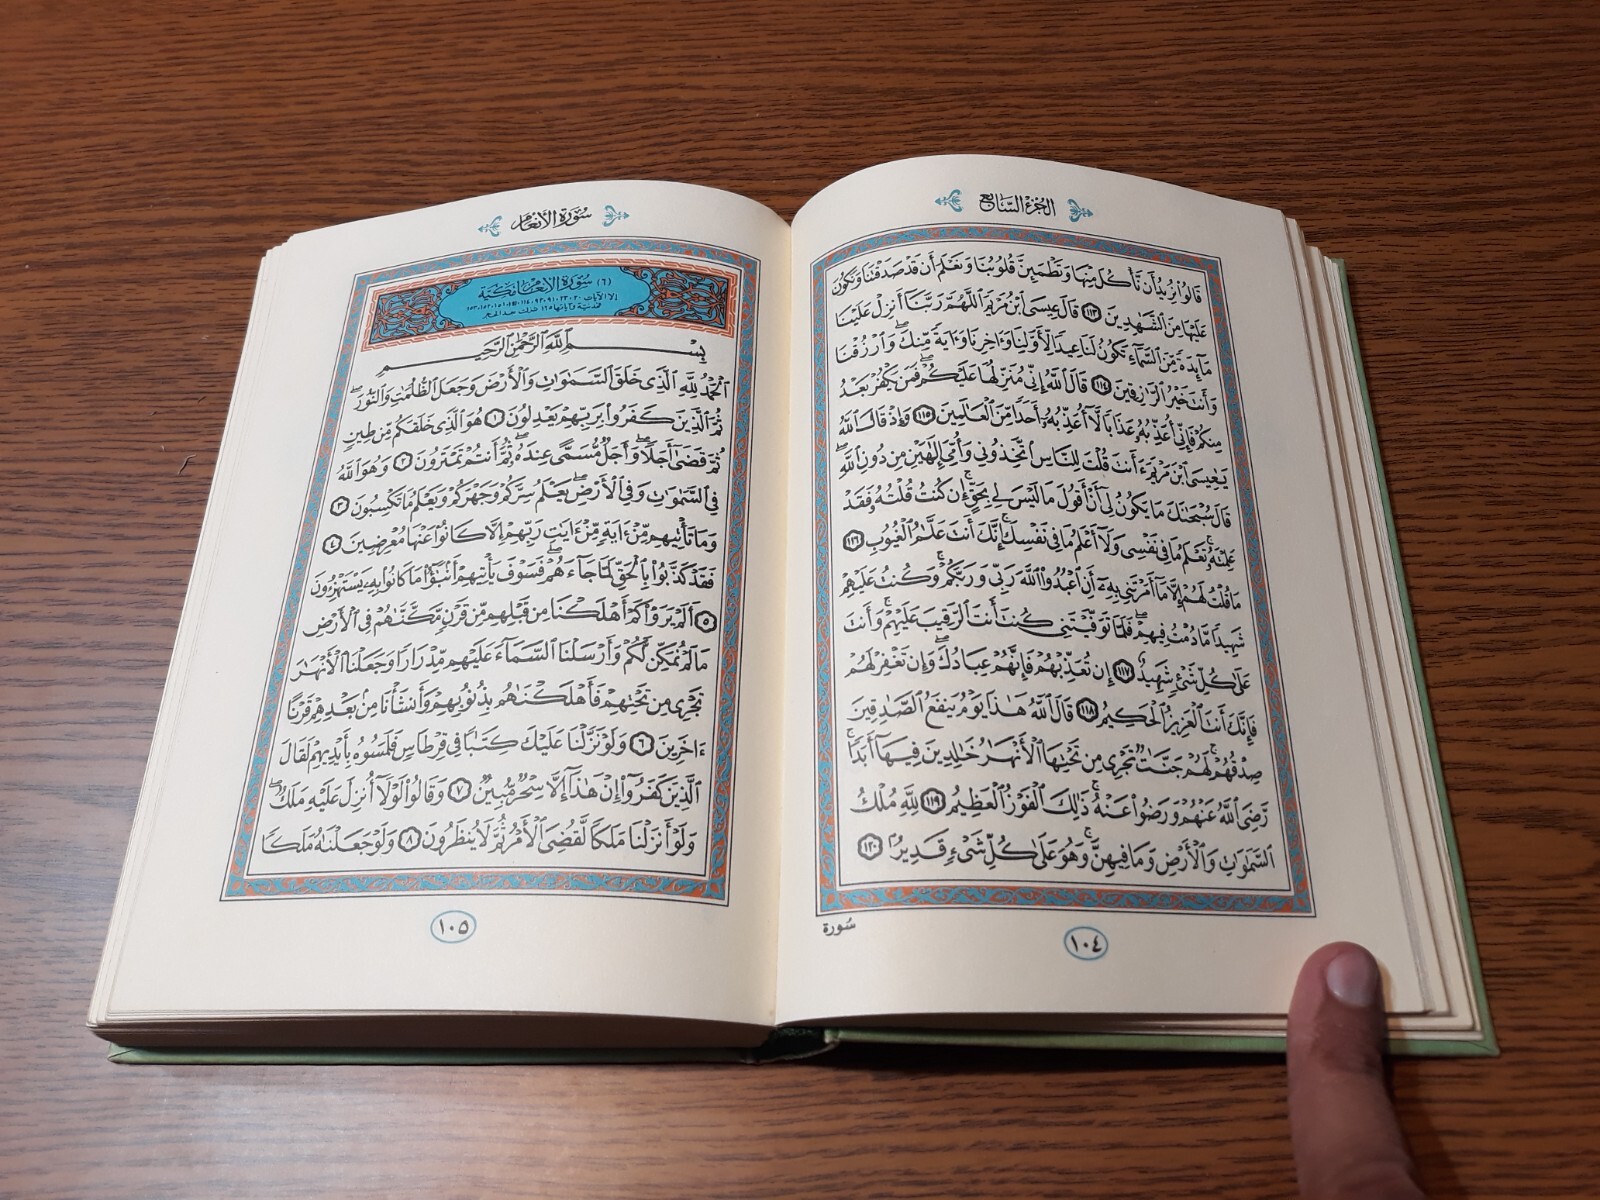 الجزء السابع
قَالُوا۟ نُرِيدُ أَن نَّأْكُلَ مِنْهَا وَتَطْمَئِنَّ قُلُوبُنَا وَنَعْلَمَ أَن قَدْ صَدَقْتَنَا وَنَكُونَ
عَلَيْهَا مِنَ ٱلشَّٰهِدِينَ ١١٣ قَالَ عِيسَى ٱبْنُ مَرْيَمَ ٱللَّهُمَّ رَبَّنَآ أَنزِلْ عَلَيْنَا
مَآئِدَةً مِّنَ ٱلسَّمَآءِ تَكُونُ لَنَا عِيدًا لِّأَوَّلِنَا وَءَاخِرِنَا وَءَايَةً مِّنكَ ۖ وَٱرْزُقْنَا
وَأَنتَ خَيْرُ ٱلرَّٰزِقِينَ ١١٤ قَالَ ٱللَّهُ إِنِّى مُنَزِّلُهَا عَلَيْكُمْ ۖ فَمَن يَكْفُرْ بَعْدُ
مِنكُمْ فَإِنِّىٓ أُعَذِّبُهُۥ عَذَابًا لَّآ أُعَذِّبُهُۥٓ أَحَدًا مِّنَ ٱلْعَٰلَمِينَ ١١٥ وَإِذْ قَالَ ٱللَّهُ
يَٰعِيسَى ٱبْنَ مَرْيَمَ ءَأَنتَ قُلْتَ لِلنَّاسِ ٱتَّخِذُونِى وَأُمِّىَ إِلَٰهَيْنِ مِن دُونِ ٱللَّهِ ۖ
قَالَ سُبْحَٰنَكَ مَا يَكُونُ لِىٓ أَنْ أَقُولَ مَا لَيْسَ لِى بِحَقٍّ ۚ إِن كُنتُ قُلْتُهُۥ فَقَدْ
عَلِمْتَهُۥ ۚ تَعْلَمُ مَا فِى نَفْسِى وَلَآ أَعْلَمُ مَا فِى نَفْسِكَ ۚ إِنَّكَ أَنتَ عَلَّٰمُ ٱلْغُيُوبِ ١١٦
مَا قُلْتُ لَهُمْ إِلَّا مَآ أَمَرْتَنِى بِهِۦٓ أَنِ ٱعْبُدُوا۟ ٱللَّهَ رَبِّى وَرَبَّكُمْ ۚ وَكُنتُ عَلَيْهِمْ
شَهِيدًا مَّا دُمْتُ فِيهِمْ ۖ فَلَمَّا تَوَفَّيْتَنِى كُنتَ أَنتَ ٱلرَّقِيبَ عَلَيْهِمْ ۚ وَأَنتَ
عَلَىٰ كُلِّ شَىْءٍ شَهِيدٌ ١١٧ إِن تُعَذِّبْهُمْ فَإِنَّهُمْ عِبَادُكَ ۖ وَإِن تَغْفِرْ لَهُمْ
فَإِنَّكَ أَنتَ ٱلْعَزِيزُ ٱلْحَكِيمُ ١١٨ قَالَ ٱللَّهُ هَٰذَا يَوْمُ يَنفَعُ ٱلصَّٰدِقِينَ
صِدْقُهُمْ ۚ لَهُمْ جَنَّٰتٌ تَجْرِى مِن تَحْتِهَا ٱلْأَنْهَٰرُ خَٰلِدِينَ فِيهَآ أَبَدًا ۚ
رَّضِىَ ٱللَّهُ عَنْهُمْ وَرَضُوا۟ عَنْهُ ۚ ذَٰلِكَ ٱلْفَوْزُ ٱلْعَظِيمُ ١١٩ لِلَّهِ مُلْكُ
ٱلسَّمَٰوَٰتِ وَٱلْأَرْضِ وَمَا فِيهِنَّ ۚ وَهُوَ عَلَىٰ كُلِّ شَىْءٍ قَدِيرٌۢ ١٢٠
سُورة
١٠٤
سُورَة الأنعام
(٦) سُورَة الأنعام مَكيّة
إلا الآيات ٢٠، ٢٣، ٩١، ٩٣، ١١٤، ١٤١، ١٥١، ١٥٢، ١٥٣
فمدنية وآياتها ١٦٥ نزلت بعد الحجر
بِسْمِ ٱللَّهِ ٱلرَّحْمَٰنِ ٱلرَّحِيمِ
ٱلْحَمْدُ لِلَّهِ ٱلَّذِى خَلَقَ ٱلسَّمَٰوَٰتِ وَٱلْأَرْضَ وَجَعَلَ ٱلظُّلُمَٰتِ وَٱلنُّورَ ۖ
ثُمَّ ٱلَّذِينَ كَفَرُوا۟ بِرَبِّهِمْ يَعْدِلُونَ ١ هُوَ ٱلَّذِى خَلَقَكُم مِّن طِينٍ
ثُمَّ قَضَىٰٓ أَجَلًا ۖ وَأَجَلٌ مُّسَمًّى عِندَهُۥ ۖ ثُمَّ أَنتُمْ تَمْتَرُونَ ٢ وَهُوَ ٱللَّهُ
فِى ٱلسَّمَٰوَٰتِ وَفِى ٱلْأَرْضِ ۖ يَعْلَمُ سِرَّكُمْ وَجَهْرَكُمْ وَيَعْلَمُ مَا تَكْسِبُونَ ٣
وَمَا تَأْتِيهِم مِّنْ ءَايَةٍ مِّنْ ءَايَٰتِ رَبِّهِمْ إِلَّا كَانُوا۟ عَنْهَا مُعْرِضِينَ ٤
فَقَدْ كَذَّبُوا۟ بِٱلْحَقِّ لَمَّا جَآءَهُمْ ۖ فَسَوْفَ يَأْتِيهِمْ أَنۢبَٰٓؤُا۟ مَا كَانُوا۟ بِهِۦ يَسْتَهْزِءُونَ
٥ أَلَمْ يَرَوْا۟ كَمْ أَهْلَكْنَا مِن قَبْلِهِم مِّن قَرْنٍ مَّكَّنَّٰهُمْ فِى ٱلْأَرْضِ
مَا لَمْ نُمَكِّن لَّكُمْ وَأَرْسَلْنَا ٱلسَّمَآءَ عَلَيْهِم مِّدْرَارًا وَجَعَلْنَا ٱلْأَنْهَٰرَ
تَجْرِى مِن تَحْتِهِمْ فَأَهْلَكْنَٰهُم بِذُنُوبِهِمْ وَأَنشَأْنَا مِنۢ بَعْدِهِمْ قَرْنًا
ءَاخَرِينَ ٦ وَلَوْ نَزَّلْنَا عَلَيْكَ كِتَٰبًا فِى قِرْطَاسٍ فَلَمَسُوهُ بِأَيْدِيهِمْ لَقَالَ
ٱلَّذِينَ كَفَرُوٓا۟ إِنْ هَٰذَآ إِلَّا سِحْرٌ مُّبِينٌ ٧ وَقَالُوا۟ لَوْلَآ أُنزِلَ عَلَيْهِ مَلَكٌ ۖ
وَلَوْ أَنزَلْنَا مَلَكًا لَّقُضِىَ ٱلْأَمْرُ ثُمَّ لَا يُنظَرُونَ ٨ وَلَوْ جَعَلْنَٰهُ مَلَكًا
١٠٥